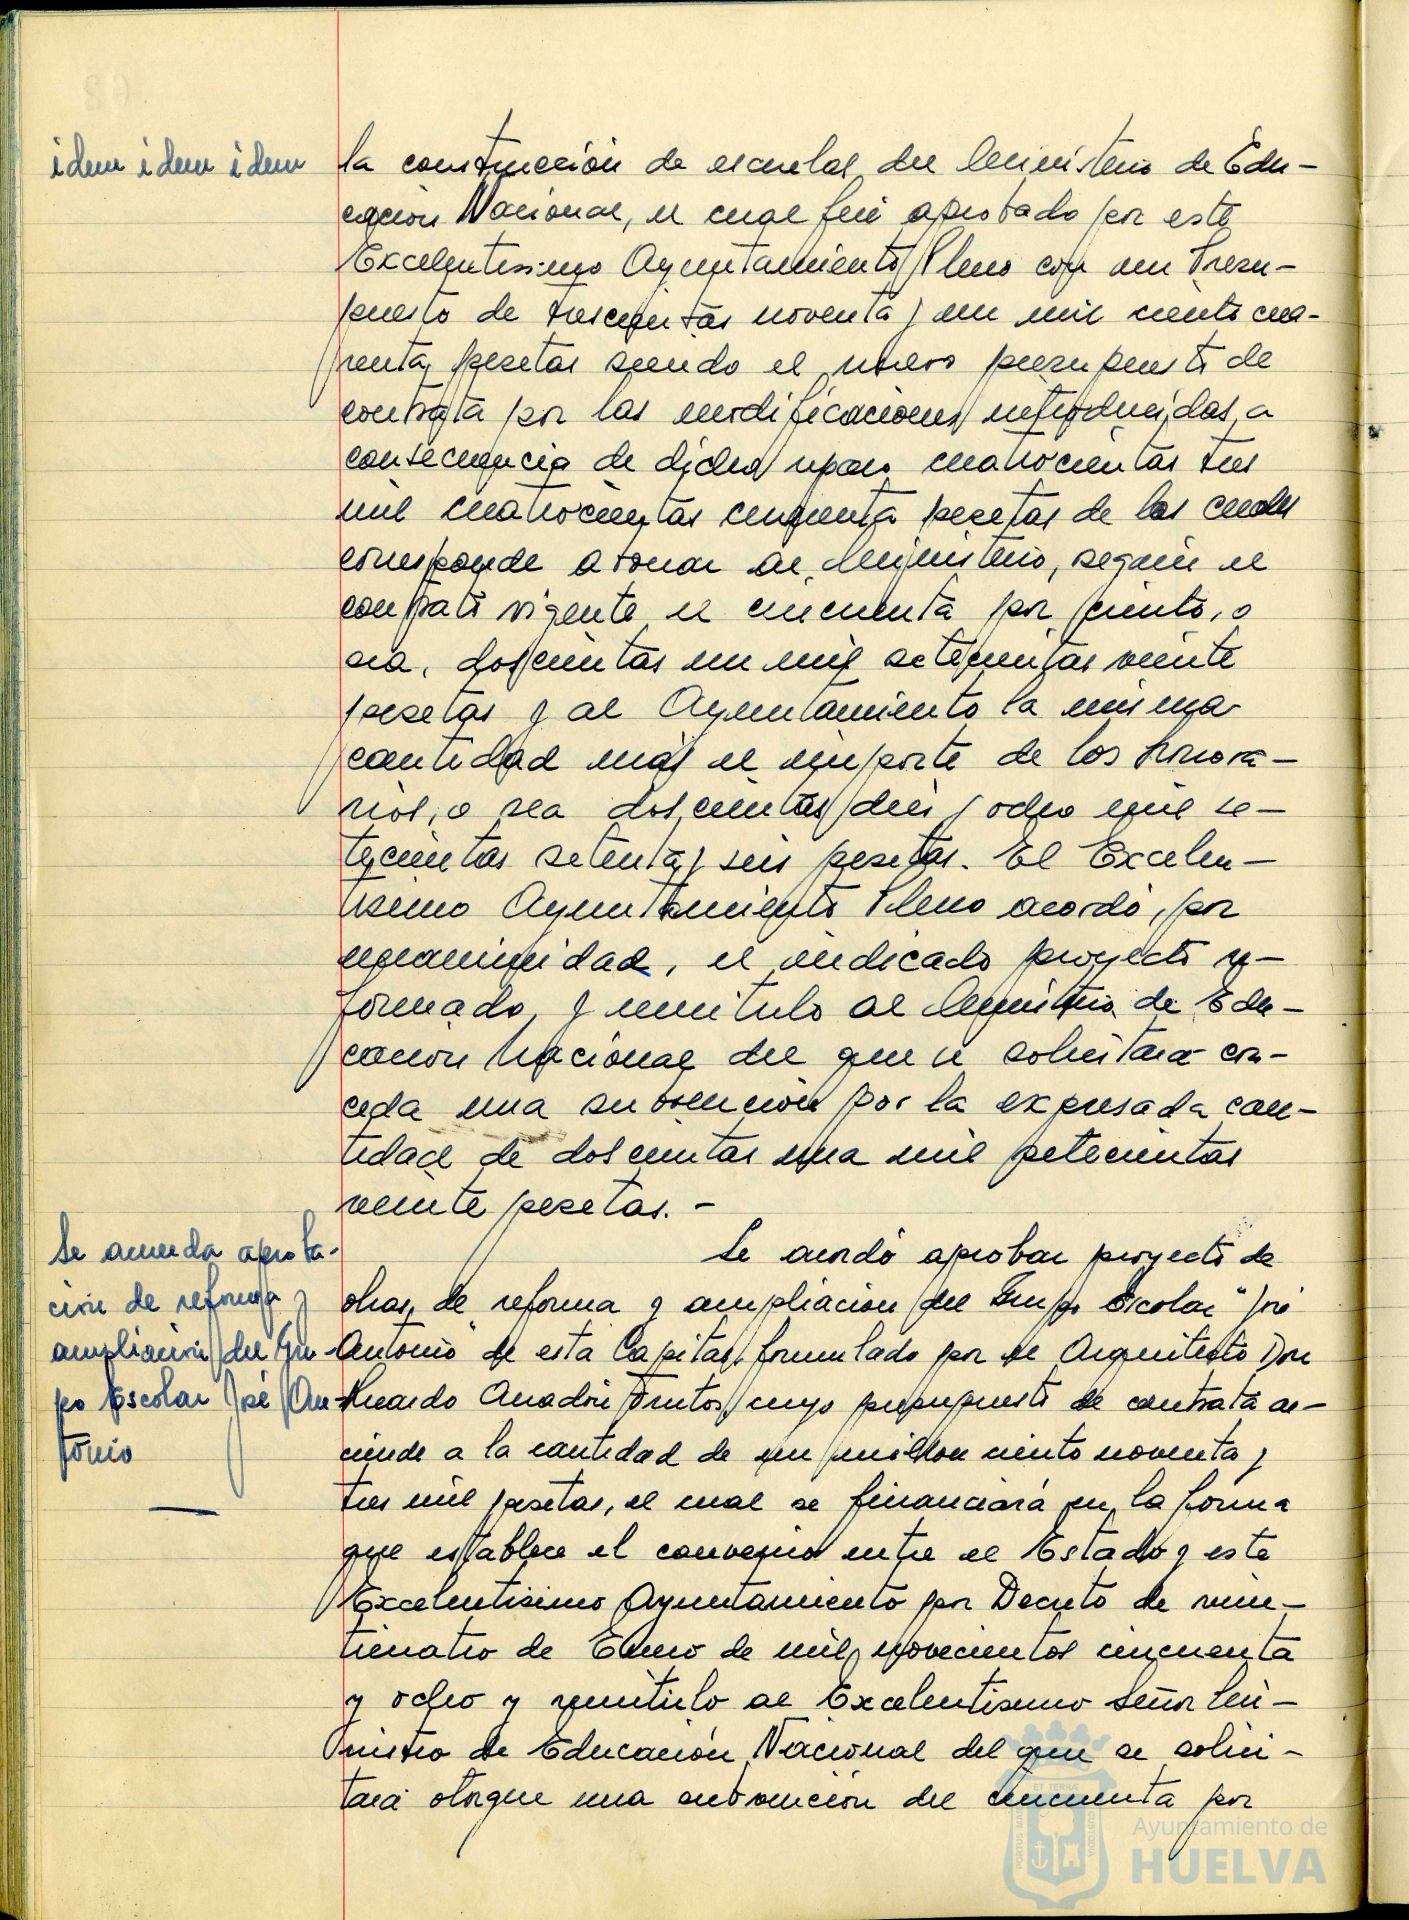 idem idem idem
la construcción de escuelas del Ministerio de Edu-
cación Nacional, el cual fué aprobado por este
Excelentissimo Ayuntamiento Pleno con un Presu-
puesto de trescientas noventa y un mil ciento cua-
renta pesetas siendo el nuevo presupuesto de
contrata por las modificaciones introducidas a
consecuencia de dicho reparo cuatrocientas tres
mil cuatrocientas cincuenta pesetas de las cuales
corresponde abonar al Ministerio, según el
contrato vigente el cincuenta por ciento, o
sea, doscientas un mil setecientas veinte
pesetas y al Ayuntamiento la misma
cantidad más el importe de los honora-
rios, o sea doscientas diez y ocho mil se-
tecientas setenta y seis pesetas. El Excelen-
tisimo Ayuntamiento Pleno acordó, por
unanimidad, el indicado proyecto re-
formado, y remitirlo al Ministerio de Edu-
cación Nacional del que se solicitará con-
ceda una subvención por la expresada can-
tidad de doscientas una mil setecientas
veinte pesetas. -
Se acuerda aproba-
ción de reforma y
ampliación del Gru-
po Escolar José An-
tonio
Se acordó aprobar proyecto de
obras de reforma y ampliación del Grupo Escolar "José
Antonio" de esta Capital, formulado por el Arquitecto Don
Ricardo Anadón Frutos, cuyo presupuesto de contrata as-
ciende a la cantidad de un millon ciento noventa y
tres mil pesetas, el cual se financiará en la forma
que establece el convenio entre el Estado y este
Excelentisimo Ayuntamiento por Decreto de vein-
ticuatro de Enero de mil novecientos cincuenta
y ocho y remitirlo al Excelentisimo Señor Mi-
nistro de Educación Nacional del que se solici-
tará otorgue una subvención del cincuenta por
Ayuntamiento de
HUELVA